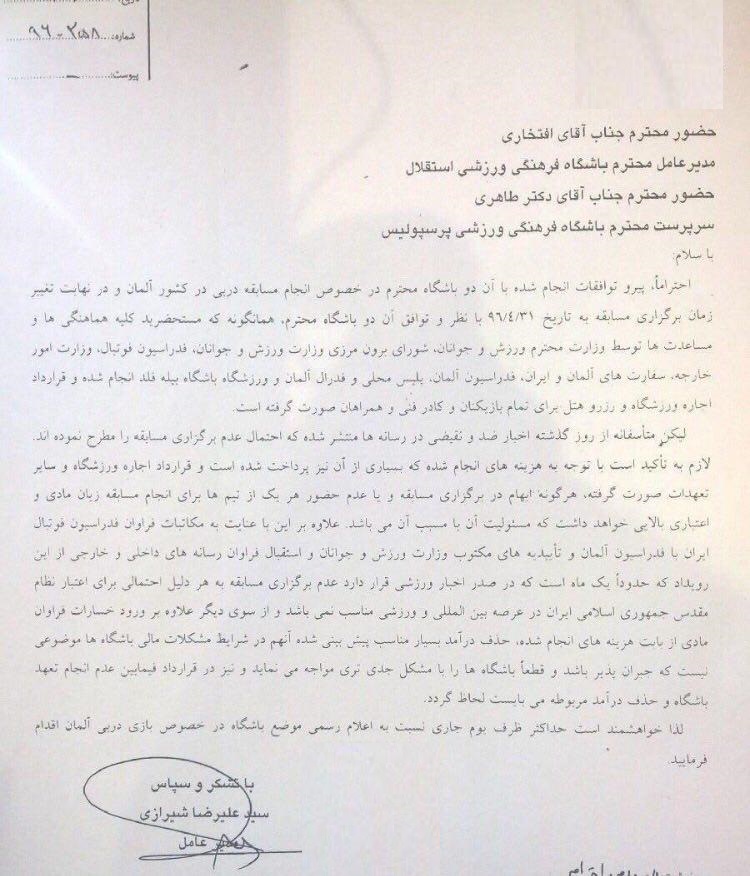 شماره: ۲۵۸-۹۶
پیوست: –
حضور محترم جناب آقای افتخاری
مدیرعامل محترم باشگاه فرهنگی ورزشی استقلال
حضور محترم جناب آقای دکتر طاهری
سرپرست محترم باشگاه فرهنگی ورزشی پرسپولیس
با سلام:
احتراماً، پیرو توافقات انجام شده با آن دو باشگاه محترم در خصوص انجام مسابقه دربی در کشور آلمان و در نهایت تغییر
زمان برگزاری مسابقه به تاریخ ۹۶/۴/۳۱ با نظر و توافق آن دو باشگاه محترم، همانگونه که مستحضرید کلیه هماهنگی ها و
مساعدت ها توسط وزارت محترم ورزش و جوانان، شورای برون مرزی وزارت ورزش و جوانان، فدراسیون فوتبال، وزارت امور
خارجه، سفارت های آلمان و ایران، فدراسیون آلمان، پلیس محلی و فدرال آلمان و ورزشگاه باشگاه بیله فلد انجام شده و قرارداد
اجاره ورزشگاه و رزرو هتل برای تمام بازیکنان و کادر فنی و همراهان صورت گرفته است.
لیکن متأسفانه از روز گذشته اخبار ضد و نقیضی در رسانه ها منتشر شده که احتمال عدم برگزاری مسابقه را مطرح نموده اند.
لازم به تأکید است با توجه به هزینه های انجام شده که بسیاری از آن نیز پرداخت شده است و قرارداد اجاره ورزشگاه و سایر
تعهدات صورت گرفته، هرگونه ابهام در برگزاری مسابقه و یا عدم حضور هر یک از تیم ها برای انجام مسابقه زیان مادی و
اعتباری بالایی خواهد داشت که مسئولیت آن با مسبب آن می باشد. علاوه بر این با عنایت به مکاتبات فراوان فدراسیون فوتبال
ایران با فدراسیون آلمان و تأییدیه های مکتوب وزارت ورزش و جوانان و استقبال فراوان رسانه های داخلی و خارجی از این
رویداد که حدوداً یک ماه است که در صدر اخبار ورزشی قرار دارد عدم برگزاری مسابقه به هر دلیل احتمالی برای اعتبار نظام
مقدس جمهوری اسلامی ایران در عرصه بین المللی و ورزشی مناسب نمی باشد و از سوی دیگر علاوه بر ورود خسارات فراوان
مادی از بابت هزینه های انجام شده، حذف درآمد بسیار مناسب پیش بینی شده آنهم در شرایط مشکلات مالی باشگاه ها موضوعی
نیست که جبران پذیر باشد و قطعاً باشگاه ها را با مشکل جدی تری مواجه می نماید و نیز در قرارداد فیمابین عدم انجام تعهد
باشگاه و حذف درآمد مربوطه می بایست لحاظ گردد.
لذا خواهشمند است حداکثر ظرف یوم جاری نسبت به اعلام رسمی موضع باشگاه در خصوص بازی دربی آلمان اقدام
فرمایید.
با تشکر و سپاس
سید علیرضا شیرازی
مدیر عامل